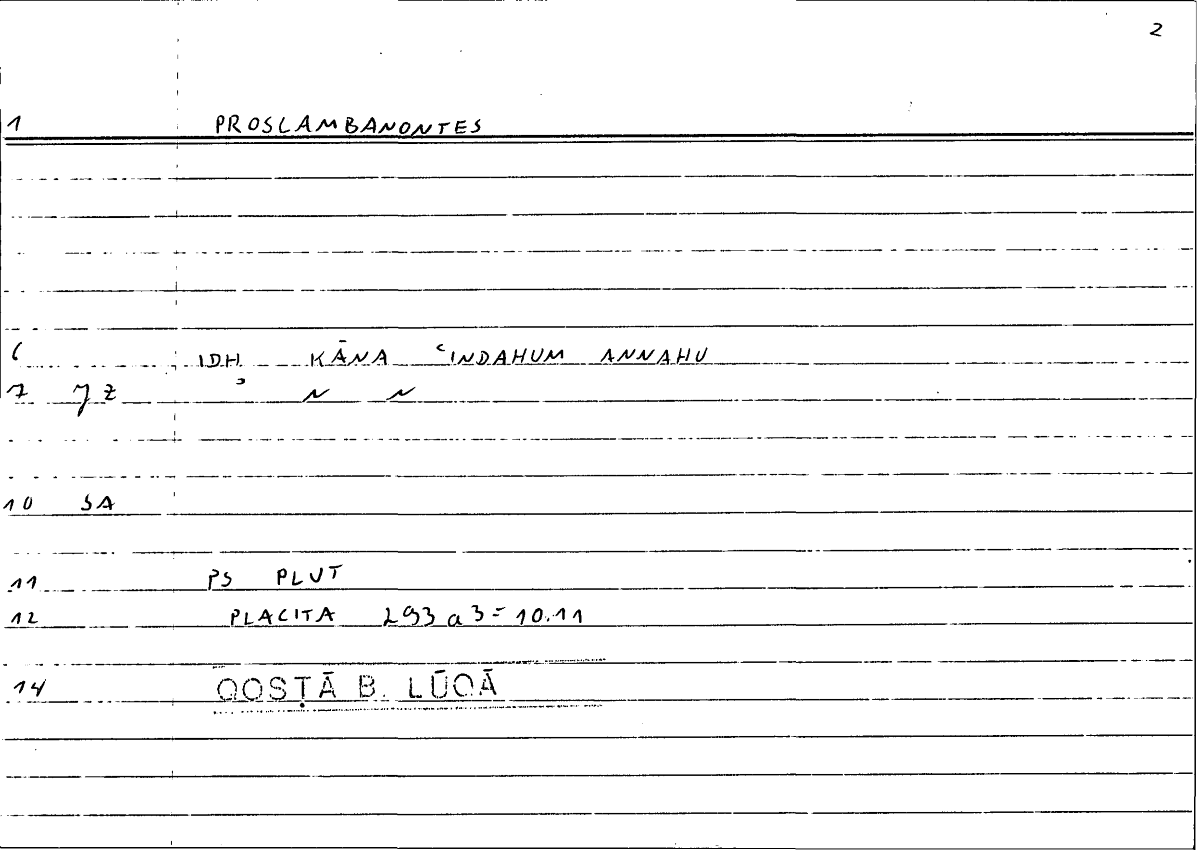 2
1 PROSLAMBANONTES
6 IDH KĀNA ʿINDAHUM ANNAHU
7 JZ
10 SA
11 PS PLUT
12 PLACITA 293 a 3 = 10.11
14 QOSṬĀ B. LŪQĀ